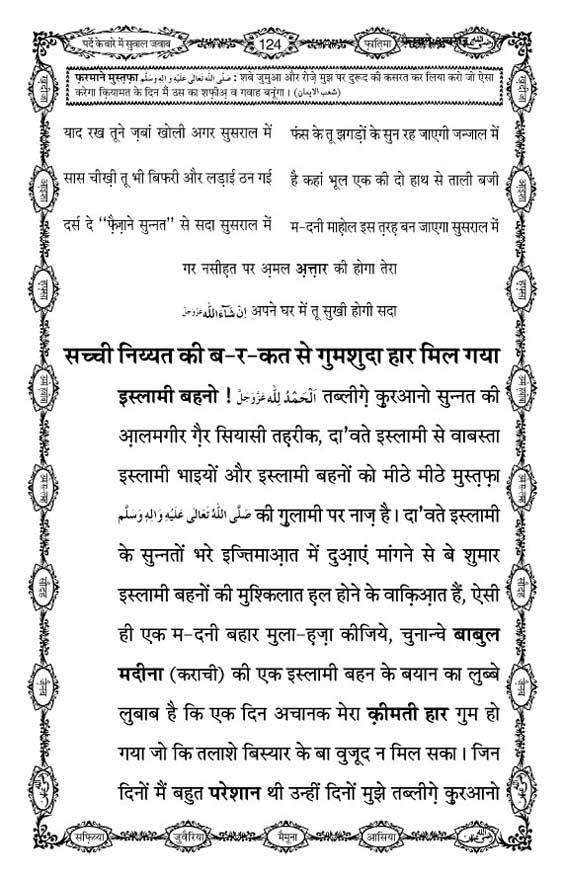 पर्दे के बारे में सुवाल जवाब
124
फ़ातिमा
फ़रमाने मुस्तफ़ा صَلَّى اللهُ تَعَالٰى عَلَيْهِ وَالِهٖ وَسَلَّم : शबे जुमुआ और रोज़े मुझ पर दुरूद की कसरत कर लिया करो जो ऐसा
करेगा क़ियामत के दिन मैं उस का शफ़ीअ़ व गवाह बनूंगा। (شعب الايمان)
याद रख तूने ज़बां खोली अगर सुसराल में फंस के तू झगड़ों के सुन रह जाएगी जन्जाल में
सास चीख़ी तू भी बिफरी और लड़ाई ठन गई है कहां भूल एक की दो हाथ से ताली बजी
दर्स दे ‘‘फ़ैज़ाने सुन्नत’’ से सदा सुसराल में म-दनी माह़ोल इस त़रह़ बन जाएगा सुसराल में
गर नसीह़त पर अ़मल अ़त्त़ार की होगा तेरा
اِنْ شَآءَ اللّٰه عَزَّوَجَلَّ अपने घर में तू सुखी होगी सदा
सच्ची निय्यत की ब-र-कत से गुमशुदा हार मिल गया
इस्लामी बहनो ! اَلْحَمْدُ لِلّٰه عَزَّوَجَلَّ तब्लीग़े क़ुरआनो सुन्नत की
आ़लमगीर ग़ैर सियासी तह़रीक, दा'वते इस्लामी से वाबस्ता
इस्लामी भाइयों और इस्लामी बहनों को मीठे मीठे मुस्त़फ़ा
صَلَّى اللهُ تَعَالٰى عَلَيْهِ وَالِهٖ وَسَلَّم की ग़ुलामी पर नाज़ है। दा'वते इस्लामी
के सुन्नतों भरे इज्तिमाआ़त में दुआ़एं मांगने से बे शुमार
इस्लामी बहनों की मुश्किलात ह़ल होने के वाक़िआ़त हैं, ऐसी
ही एक म-दनी बहार मुला-ह़ज़ा कीजिये, चुनान्चे बाबुल
मदीना (कराची) की एक इस्लामी बहन के बयान का लुब्बे
लुबाब है कि एक दिन अचानक मेरा क़ीमती हार गुम हो
गया जो कि तलाशे बिस्यार के बा वुजूद न मिल सका। जिन
दिनों मैं बहुत परेशान थी उन्हीं दिनों मुझे तब्लीग़े क़ुरआनो
सफ़िय्या
जुवैरिया
मैमूना
आसिया